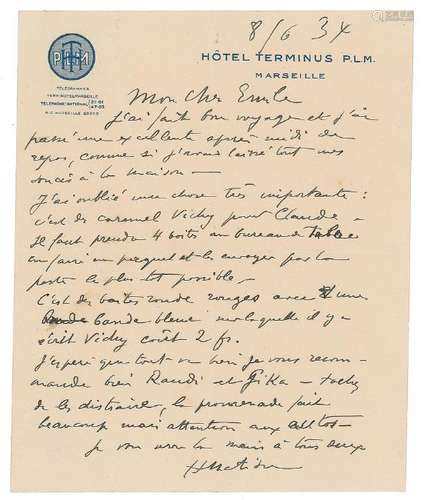 8/6 34
PLM
HÔTEL TERMINUS P.L.M.
MARSEILLE
TÉLÉGRAMMES
TERMINOTEL MARSEILLE
TÉLÉPHONE NATIONAL
R.C. MARSEILLE
Mon cher Emile
J'ai fait bon voyage et j'ai
passé une excellente après midi de
repos, comme si j'avais laissé tout mes
soucis à la maison –
J'ai oublié une chose très importante :
c'est du caramel Vichy pour Claude –
Il faut prendre 4 boîtes au bureau de tabac
en faire un paquet et les envoyer par la
poste le plus tôt possible –
C'est des boîtes ronde rouges avec une
bande bleue sur laquelle il y a
écrit Vichy coût 2 fr.
J'espère que tout va bien je vous recom-
mande bien Raudi et Gika – tachez
de les distraire, la promenade fait
beaucoup mais attention aux autos –
Je vous serre la main à tous deux
HMatisse